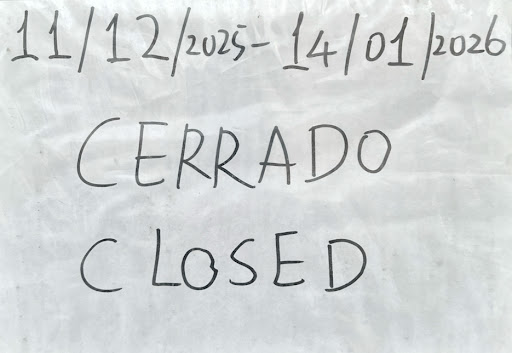 11/12/2025-14/01/2026
CERRADO
CLOSED